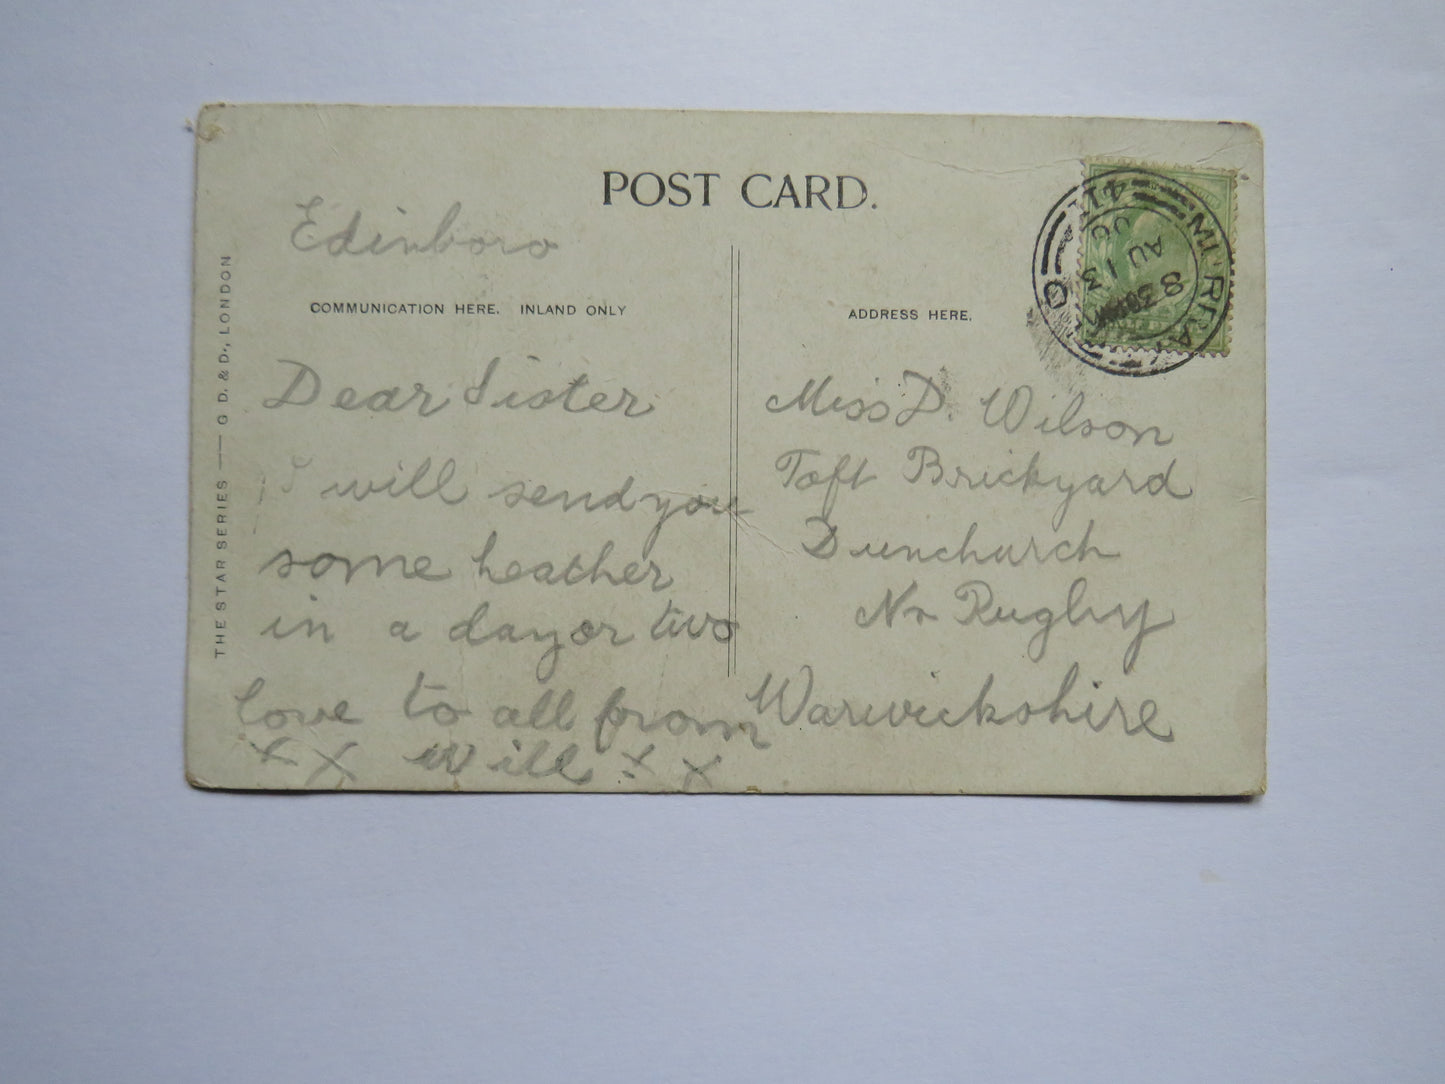 POST CARD.
Edinboro
COMMUNICATION HERE. INLAND ONLY
Dear Sister
I will send you
some heather
in a day or two
love to all from
x X Will x X
ADDRESS HERE.
Miss D. Wilson
Toft Brickyard
Dunchurch
Nr Rugby
Warwickshire
THE STAR SERIES — G. D. & D., LONDON
8 30
AU 13